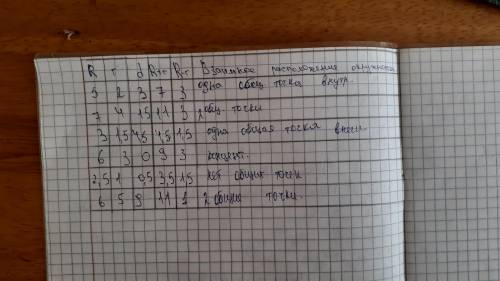 R r d R+r R-r Взаимное расположение окружностей
5 2 3 7 3 одна общ. точка внутр.
7 4 1,5 11 3 общ. точки
3 1,5 4,5 4,5 1,5 одна общая точка внеш.
6 3 0 9 3 концент.
2,5 1 0,5 3,5 1,5 нет общих точек
6 5 9 11 1 2 общих точки.